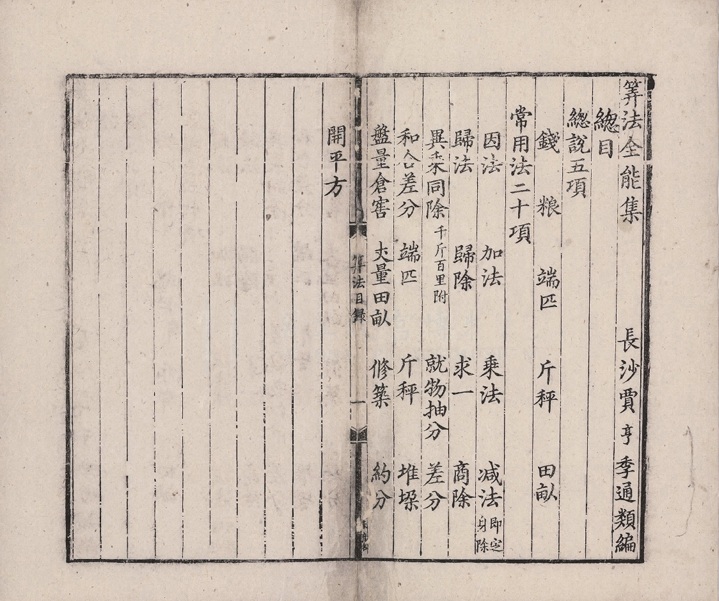 筭法全能集　長沙賈亨季通類編
總目
總說五項
錢　粮　端匹　斤秤　田畝
常用法二十項
因法　加法　乘法　减法即定身除
歸法　歸除　求一　商除
異乘同除千斤百里附　就物抽分　差分
和合差分　端匹　斤秤　堆垛
盤量倉窖　丈量田畝　修築　約分
算法目錄　一
開平方